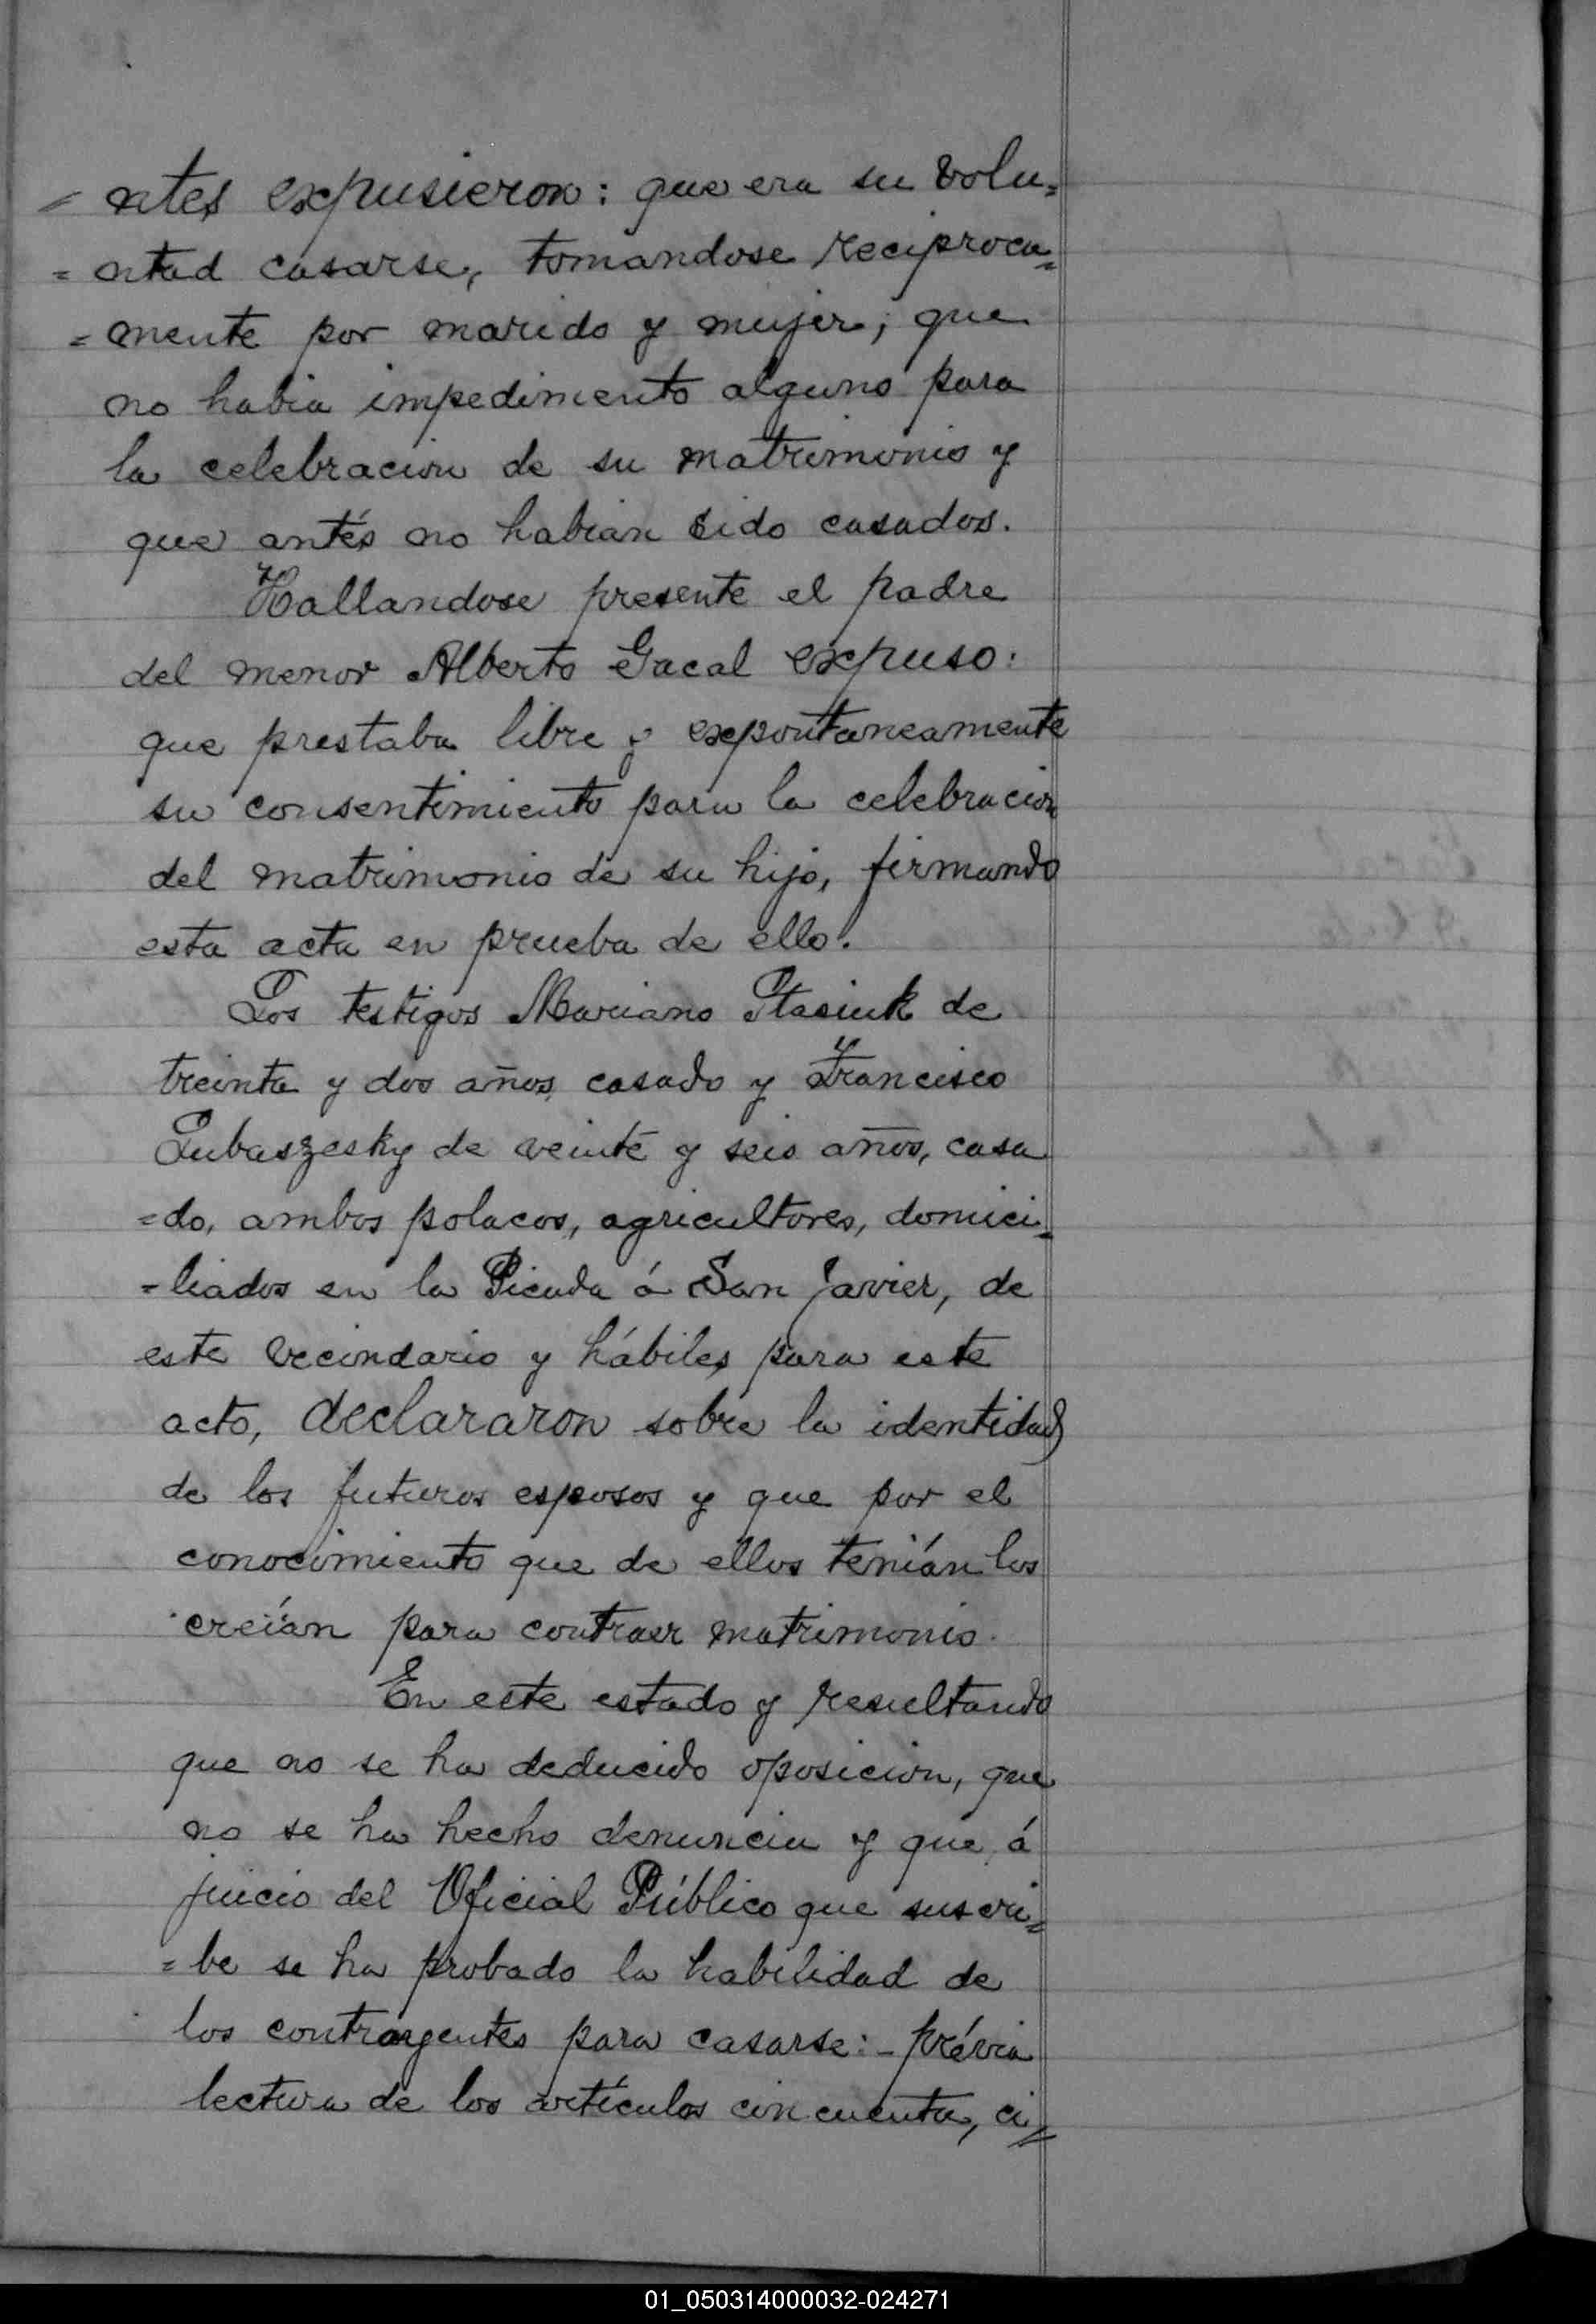 = ntes expusieron: que era su volu=
= ntad casarse, tomandose reciproca=
= mente por marido y mujer; que
no habia impedimento alguno para
la celebracion de su matrimonio y
que antés no habian sido casados.
Hallandose presente el padre
del menor Alberto Gacal expuso:
que prestaba libre y expontaneamente
su consentimiento para la celebracion
del matrimonio de su hijo, firmando
esta acta en prueba de ello.
Los testigos Mariano Stasiuk de
treinta y dos años, casado y Francisco
Lubaszesky de veinte y seis años, casa
=do, ambos polacos, agricultores, domici=
=liados en la Picada á San Javier, de
este vecindario y hábiles para este
acto, declararon sobre la identidad
de los futuros esposos y que por el
conocimiento que de ellos tenían los
creían para contraer matrimonio.
En este estado y resultando
que no se ha deducido oposicion, que
no se ha hecho denuncia y que á
juicio del Oficial Público que suscri=
=be se ha probado la habilidad de
los contrayentes para casarse:- prévia
lectura de los artículos cincuenta, ci=
01_050314000032-024271